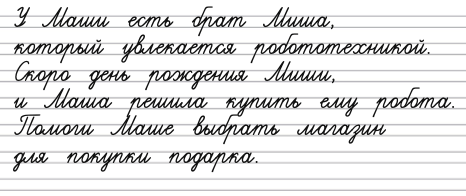 У Маши есть брат Миша,
который увлекается робототехникой.
Скоро день рождения Миши,
и Маша решила купить ему робота.
Помоги Маше выбрать магазин
для покупки подарка.